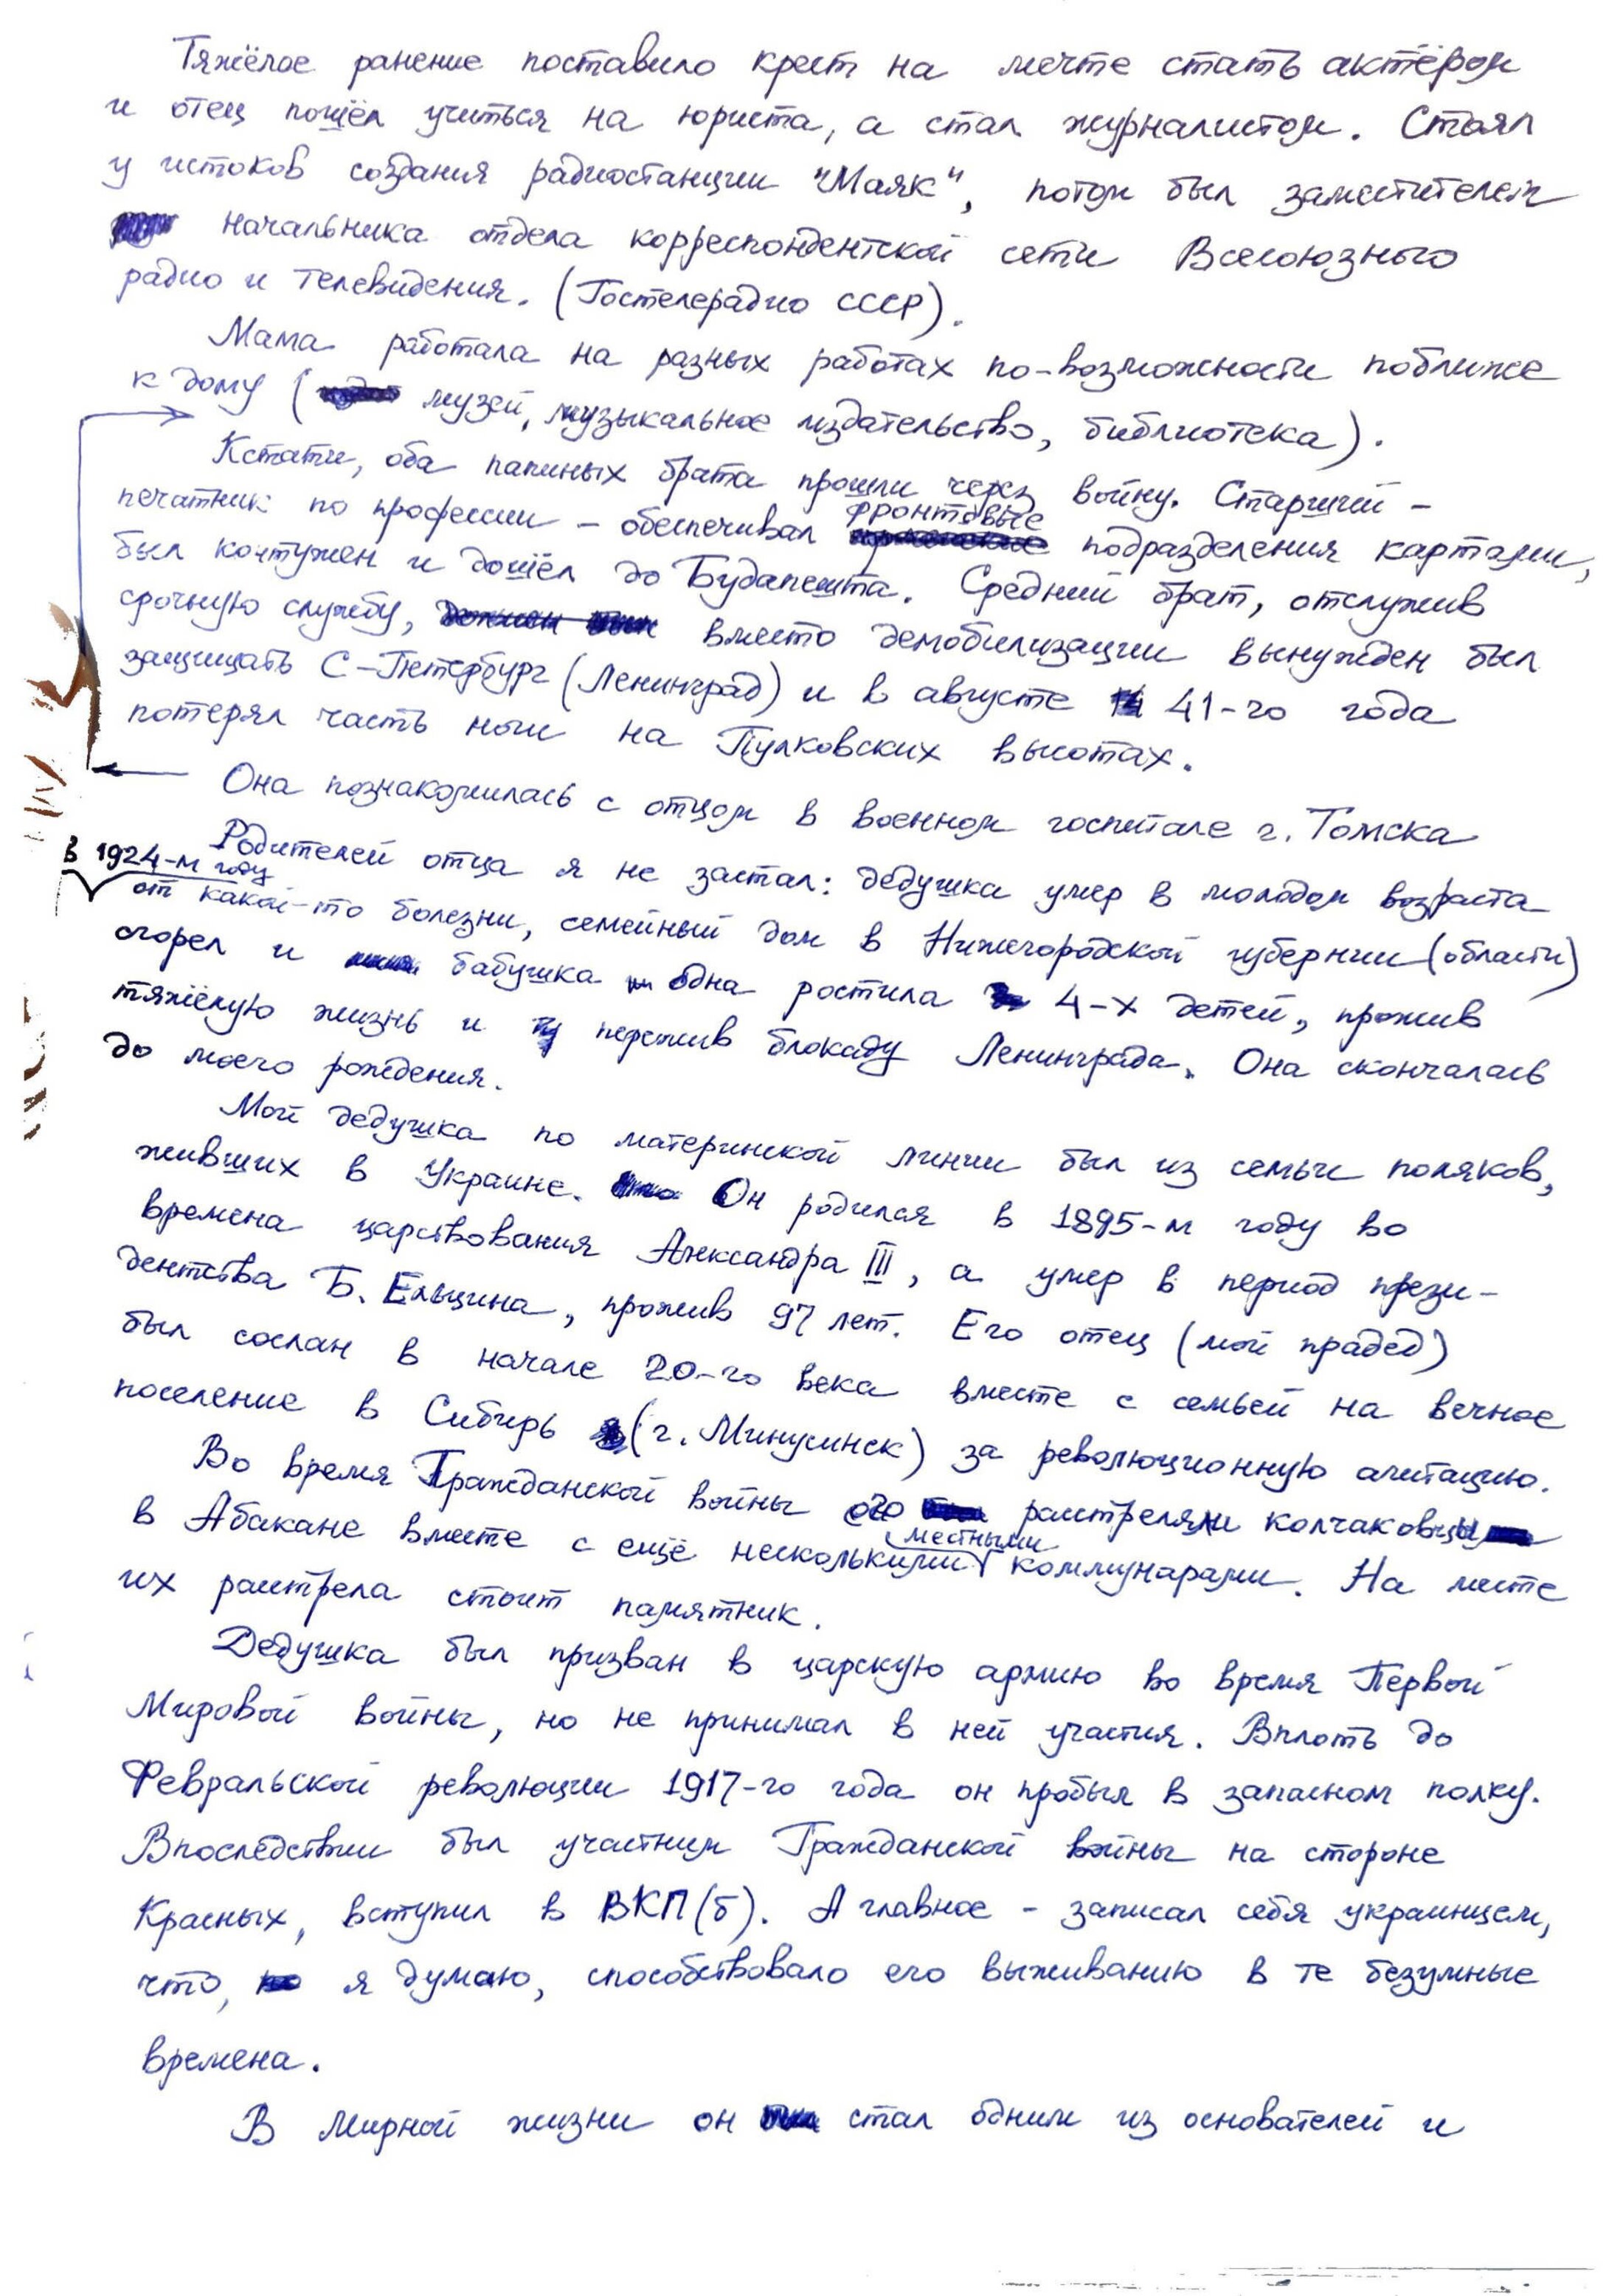 Тяжёлое ранение поставило крест на мечте стать актёром
и отец пошёл учиться на юриста, а стал журналистом. Стоял
у истоков создания радиостанции "Маяк", потом был заместителем
начальника отдела корреспондентской сети Всесоюзного
радио и телевидения. (Гостелерадио СССР).
Мама работала на разных работах по-возможности поближе
к дому ( музей, музыкальное издательство, библиотека).
Кстати, оба папиных брата прошли через войну. Старший -
печатник по профессии - обеспечивал фронтовые подразделения картами,
был контужен и дошёл до Будапешта. Средний брат, отслужив
срочную службу, вместо демобилизации вынужден был
защищать С-Петербург (Ленинград) и в августе 41-го года
потерял часть ноги на Пулковских высотах.
Она познакомилась с отцом в военном госпитале г. Томска
Родителей отца я не застал: дедушка умер в молодом возраста
в 1924-м году
от какой-то болезни, семейный дом в Нижегородской губернии (области)
сгорел и бабушка одна ростила 4-х детей, прожив
тяжёлую жизнь и пережив блокаду Ленинграда. Она скончалась
до моего рождения.
Мой дедушка по материнской линии был из семьи поляков,
живших в Украине. Он родился в 1895-м году во
времена царствования Александра III, а умер в период прези-
дентства Б. Ельцина, прожив 97 лет. Его отец (мой прадед)
был сослан в начале 20-го века вместе с семьей на вечное
поселение в Сибирь (г. Минусинск) за революционную агитацию.
Во время Гражданской войны его расстреляли колчаковцы
в Абакане вместе с ещё несколькими местными коммунарами. На месте
их расстрела стоит памятник.
Дедушка был призван в царскую армию во время Первой
Мировой войны, но не принимал в ней участия. Вплоть до
Февральской революции 1917-го года он пробыл в запасном полку.
Впоследствии был участник Гражданской войны на стороне
Красных, вступил в ВКП(б). А главное - записал себя украинцем,
что, я думаю, способствовало его выживанию в те безумные
времена.
В мирной жизни он стал одним из основателей и